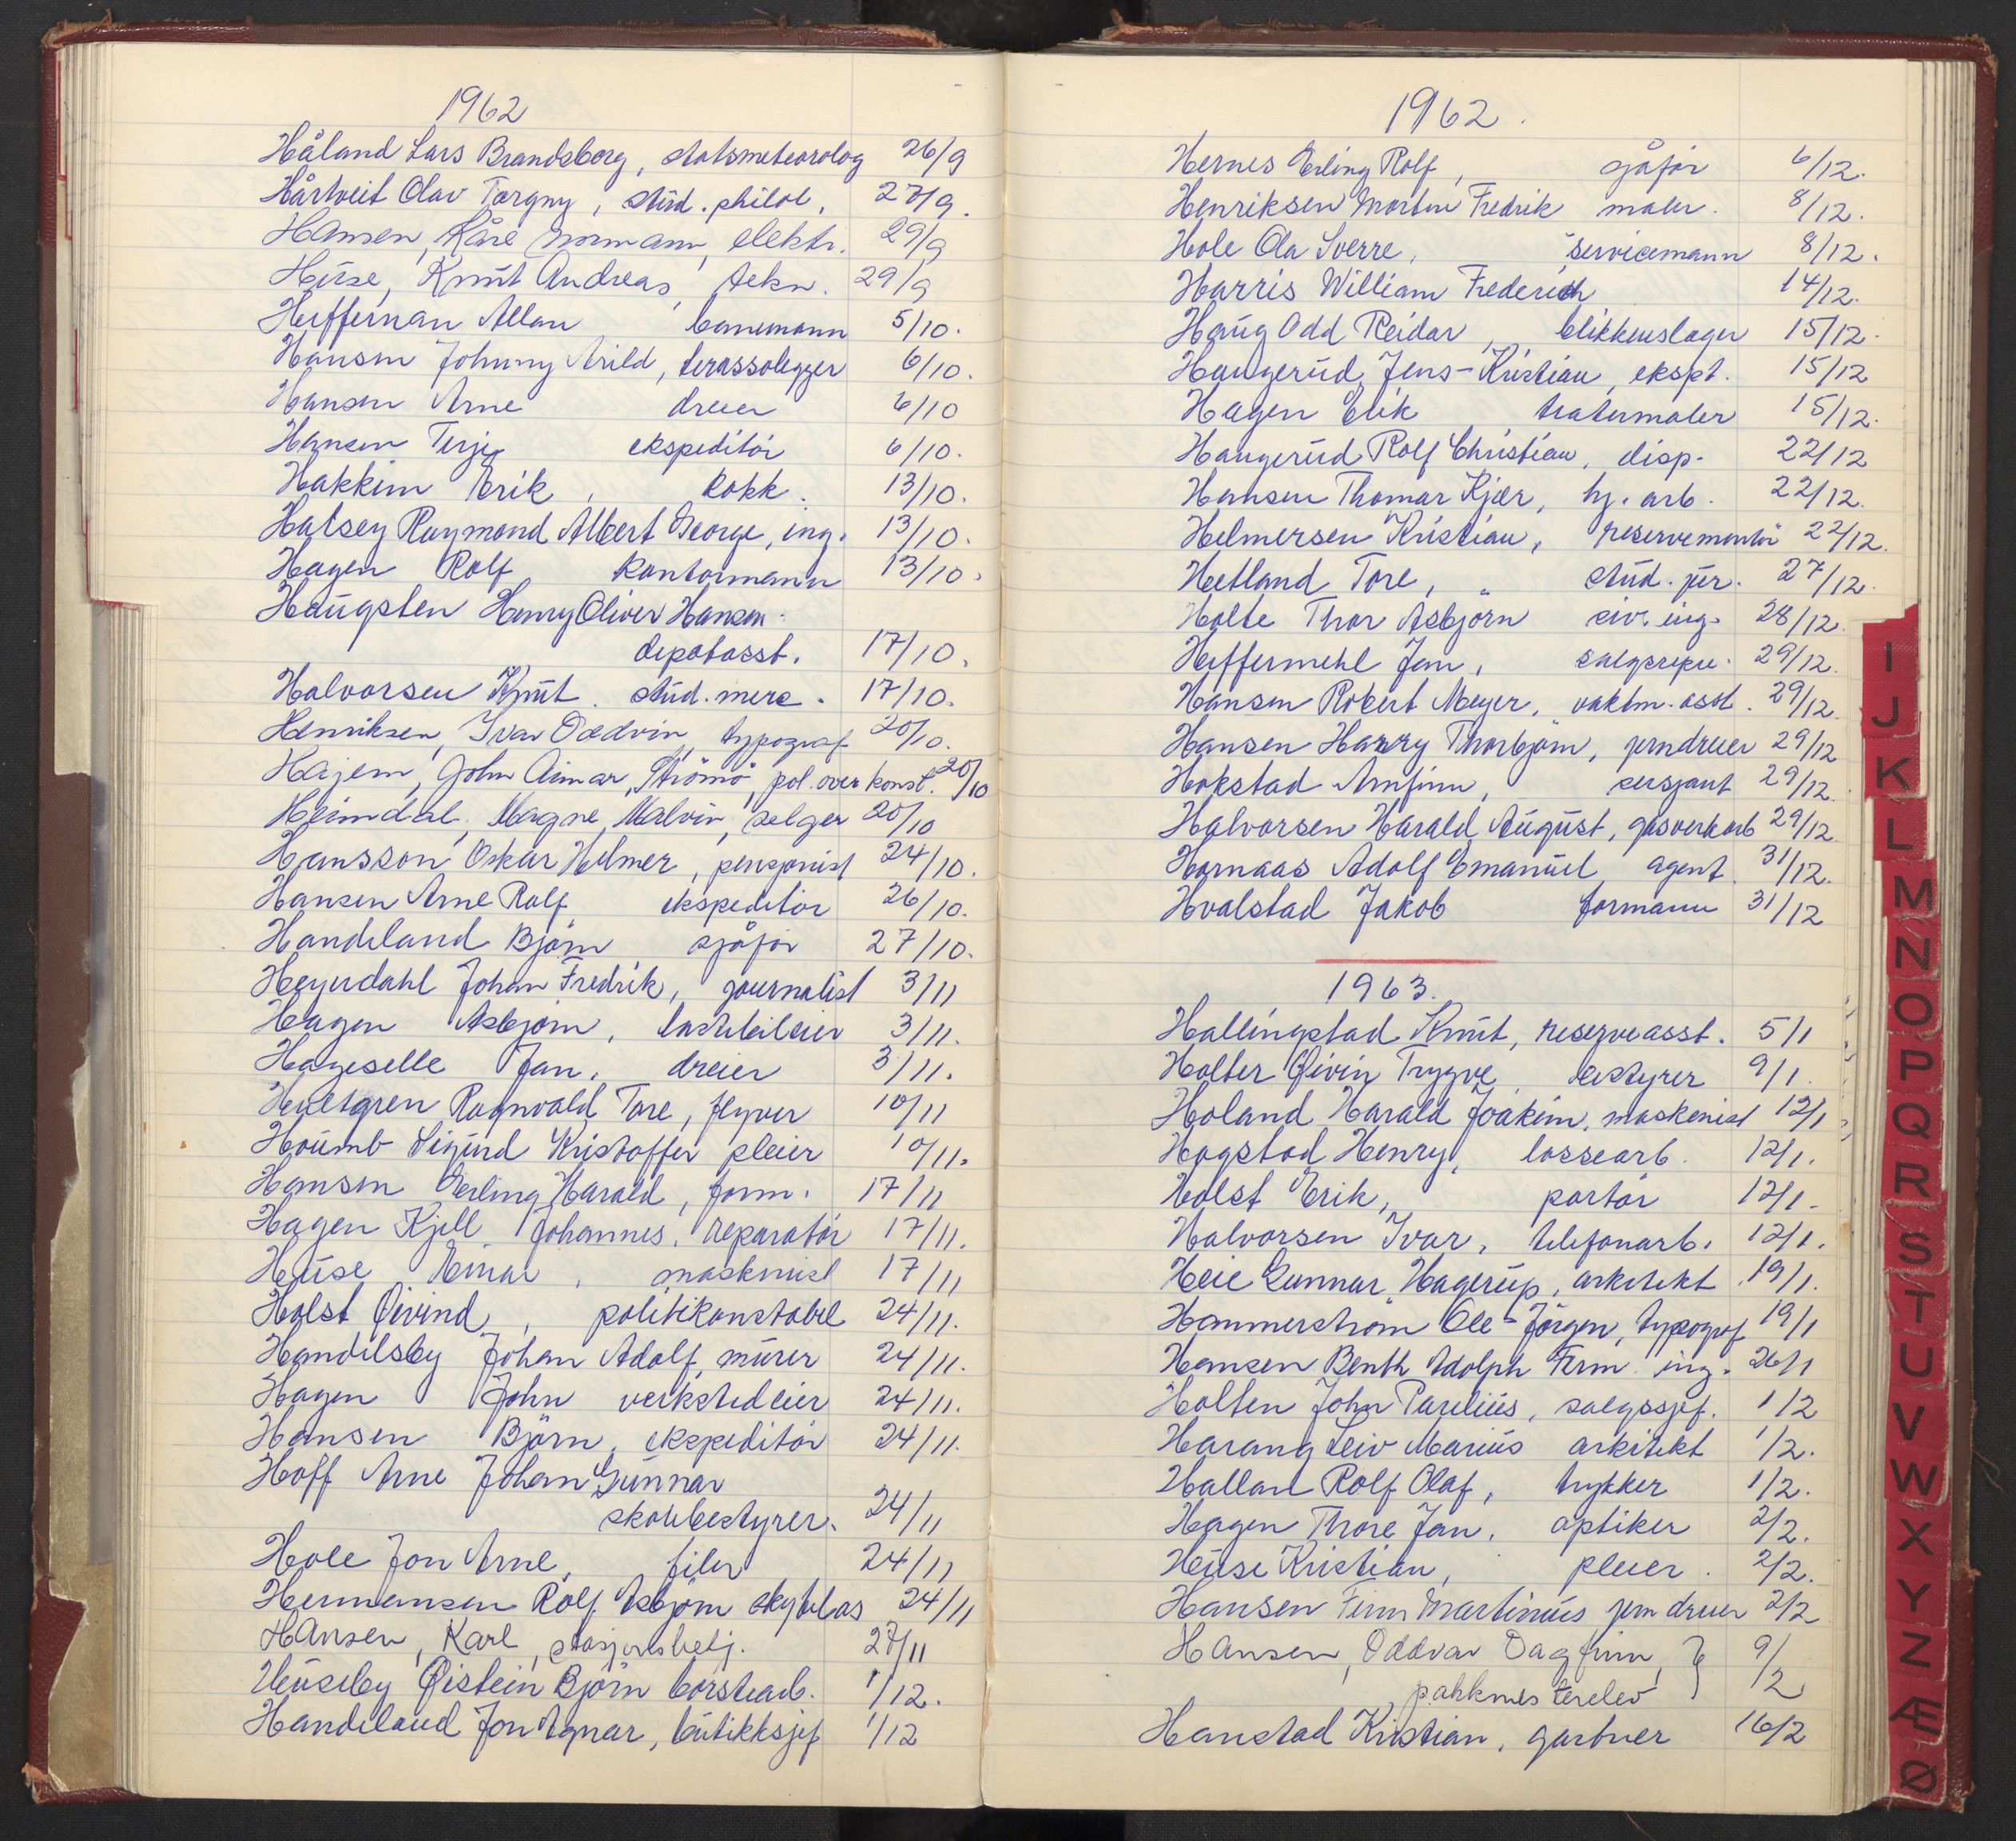 1962
Håland Lars Brandsberg, statsmeteorolog 26/9
Hårtveit Olav Torgny, stud. philol. 27/9.
Hansen, Kåre Normann, elektr. 29/9
Huse, Knut Andreas, tekn. 29/9
Heffernan Allan banemann 5/10.
Hansen Johnny Arild, terassolegger 6/10.
Hansen Arne dreier 6/10
Hansen Terje ekspeditör 6/10.
Hakkim Erik, kokk. 13/10.
Halsey Raymond Albert George, ing. 13/10.
Hagen Rolf kontormann 13/10.
Haugsten Henry Oliver Hansen
depotasst. 17/10.
Halvorsen Knut. stud. merc. 17/10.
Henriksen, Ivar Oddvin, typograf 20/10.
Hajem, John Aimar, Strömö, pol.overkonst. 20/10
Heimdal, Magne Malvin, selger 20/10
Hansson Oskar Helmer, pensjonist 24/10.
Hansen Arne Rolf ekspeditör 26/10.
Handeland Björn sjåför 27/10.
Heyerdahl Johan Fredrik, journalist 3/11
Hagen Asbjörn, lastebileier 3/11.
Hageselle Jan, dreier 3/11.
Hultgren Ragnvald Tore, flyver 10/11
Houmb Sigurd Kristoffer pleier 10/11.
Hansen Erling Harald, form. 17/11
Hagen Kjell Johannes, reparatör 17/11.
Huse Einar, maskinist 17/11
Holst Öivind, politikonstabel 24/11.
Handelsby Johan Adolf, murer 24/11.
Hagen John verkstedeier 24/11.
Hansen Björn, ekspeditör 24/11.
Hoff Arne Johan Gunnar
skolebestyrer. 24/11
Hole Jon Arne, filer 24/11
Hermansen Rolf Asbjörn skytelas 24/11
Hansen, Karl, stasjonsbetj. 27/11
Huseby Öistein Björn börstearb. 1/12.
Handeland Jon Agnar, butikksjef 1/12
1962.
Hernes Erling Rolf, sjåför 6/12.
Henriksen Morten Fredrik maler. 8/12.
Hole Ola Sverre, servicemann 8/12.
Harris William Frederich 14/12.
Haug Odd Reidar, blikkenslager 15/12.
Haugerud Jens-Kristian, ekspt. 15/12
Hagen Erik teatermaler 15/12.
Haugerud Rolf Christian, disp. 22/12
Hansen Thomas Kjær, hj. arb. 22/12.
Helmersen Kristian, reservemontör 22/12.
Hetland Tore, stud. jur. 27/12.
Holte Thor Asbjörn siv. ing. 28/12.
Heffermehl Jan, salgsrepr. 29/12.
Hansen Robert Meyer, vaktm. asst. 29/12.
Hansen Harry Thorbjörn, jerndreier 29/12
Hokstad Arnfinn, sersjant 29/12.
Halvorsen Harald August, gasverkarb 29/12.
Hornaas Adolf Emanuel agent 31/12.
Hvalstad Jakob formann 31/12
1963.
Hallingstad Knut, reserveasst. 5/1
Holter Öivin Trygve, bestyrer 9/1.
Holand Harald Joakim, maskinist 12/1
Hogstad Henry, lossearb. 12/1.
Holst Erik, portör 12/1.
Halvorsen Ivar, telefonarb. 12/1.
Heie Gunnar Hagerup, arkitekt 19/1.
Hammerström Ole-Jörgen, typograf 19/1
Hansen Benth Adolph Ferm. ing. 26/1
Holten John Parelius, salgssjef. 1/2
Harang Leiv Marius arkitekt 1/2.
Hallan Rolf Olaf, trykker 1/2.
Hagen Thore Jan, optiker 2/2.
Huse Kristian, pleier. 2/2.
Hansen Finn Martinius jerndreier 2/2
Hansen, Oddvar Dagfinn, } 9/2
pakkmesterelev
Hanstad Kristian, gartner 16/2
I
J
K
L
M
N
O
P
Q
R
S
T
U
V
W
X
Y
Z
Æ
Ø